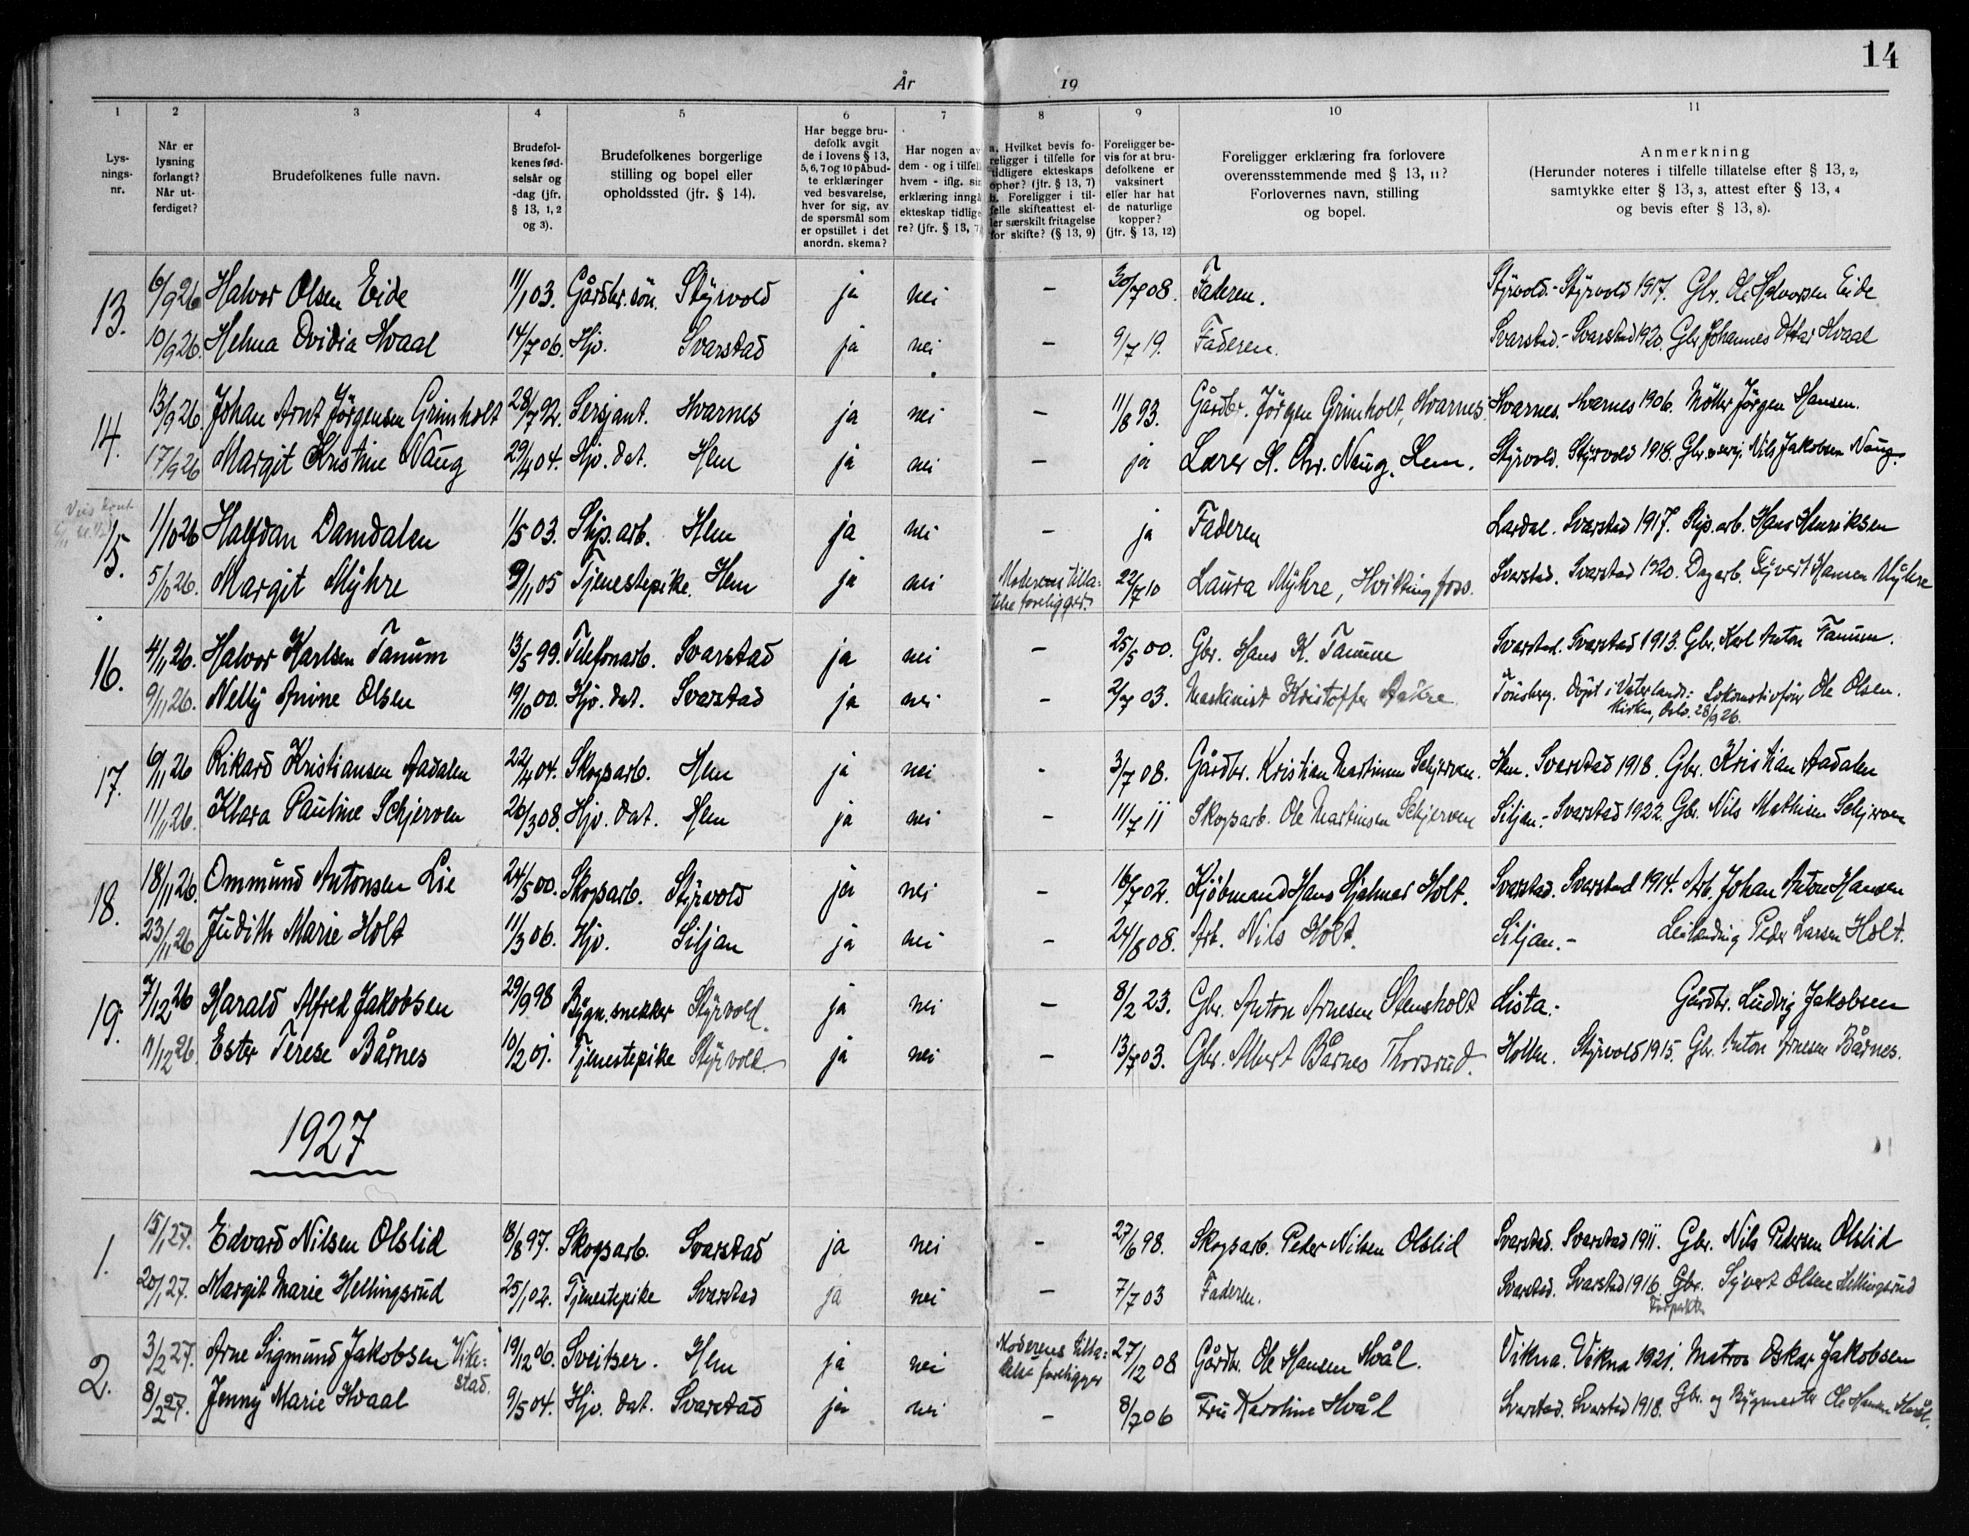 14
År 19
1 2 3 4 5 6 7 8 9 10 11
Lys-
nings-
nr.
Når er
lysning
forlangt?
Når ut-
ferdiget?
Brudefolkenes fulle navn.
Brudefol-
kenes fød-
selsår og
-dag (jfr.
§ 13, 1, 2
og 3).
Brudefolkenes borgerlige
stilling og bopel eller
opholdssted (jfr. § 14).
Har begge bru-
defolk avgit
de i lovens § 13,
5, 6, 7 og 10 påbud-
te erklæringer
ved besvarelse,
hver for sig, av
de spørsmål som
er opstillet i det
anordn. skema?
Har nogen av
dem - og i tilfelle
hvem - iflg. sin
erklæring inngå
ekteskap tidlige
re? (jfr. § 13, 7)
a. Hvilket bevis fo-
religger i tilfelle for
tidligere ekteskaps
ophør? (jfr. § 13, 7)
b. Foreligger i til-
felle skifteattest el-
ler særskilt fritagelse
for skifte? (§ 13, 9)
Foreligger be-
vis for at bru-
defolkene er
vaksinert
eller har hat
de naturlige
kopper?
(jfr. § 13, 12)
Foreligger erklæring fra forlovere
overensstemmende med § 13, 11?
Forlovernes navn, stilling
og bopel.
Anmerkning
(Herunder noteres i tilfelle tillatelse efter § 13, 2,
samtykke efter § 13, 3, attest efter § 13, 4
og bevis efter § 13, 8).
13. 6/9 26 Halvor Olsen Eide 11/1 03. Gårdbr. søn Styrvold ja nei — 30/7 08. Faderen. Styrvold. - Styrvold 1917. Gbr. Ole Halvorsen Eide
10/9 26. Helma Ovidia Hvaal 14/7 06. Hjv. Svarstad ja nei — 9/7 19. Faderen. Svarstad. - Svarstad 1920. Gbr Johannes Ottar Hvaal
14. 13/9 26. Johan Arnt Jörgensen Grimholt 28/7 92. Sersjant. Hvarnes ja nei — 11/8 93. Gårdbr. Jörgen Grimholt, Hvarnes. Hvarnes. Hvarnes 1906. Möller Jörgen Hansen.
17/9 26 Margit Kristine Naug 29/4 04. Hjv. dat. Hem ja nei — ja Lærer H. Chr. Naug, Hem. Styrvold. Styrvold 1918. Gbr. Nils Jakobsen Naug.
15. 1/10 26 Halfdan Damdalen 1/5 03. Slip. arb. Hem ja nei — ja Faderen Lardal. Svarstad 1917. Slip. arb. Hans Henriksen
5/10 26. Margit Myhre 9/11 05 Tjenestepike. Hem ja nei Moderens tilla-
telse foreligger. 22/7 10 Laura Myhre, Hvittingfoss. Svarstad. Svarstad 1920. Dagarb. Syvert Hansen Myhre
16. 4/11 26. Halvor Karlsen Tanum 13/5 99. Telefonarb. Svarstad ja nei — 25/5 00. Gbr. Hans K. Tanum Svarstad. Svarstad 1913. Gbr. Karl Anton Tanum.
9/11 26. Nelly Anine Olsen 19/10 00. Hjv. dat. Svarstad ja nei — 2/7 03. Maskinist Kristoffer Aakre. Tönsberg. Döpt i Vaterlands: Lokomotivförer Ole Olsen.
Kirken, Oslo. 28/9 26.
17. 6/11 26 Rikard Kristiansen Aadalen 22/4 04. Skogsarb. Hem ja nei - 3/7 08. Gårdbr. Kristian Martinsen Schjerven. Hem. Svarstad 1918. Gbr. Kristian Aadalen
11/11 26. Klara Pauline Schjerven 26/3 08. Hjv. dat. Hem ja nei — 11/7 11 Skogsarb. Ole Martinsen Schjerven Siljan. - Svarstad 1922 Gbr. Nils Mathisen Schjerven
18. 18/11 26. Ommund Antonsen Lie 24/5 00. Skogsarb. Styrvold ja nei — 16/7 02. Kjöbmand Hans Hjalmar Holt. Svarstad. Svarstad 1914. Arb. Johan Anton Hansen
23/11 26 Judith Marie Holt 11/3 06. Hjv. Siljan ja nei — 24/8 08. Arb. Nils Holt. Siljan. - Leilending Peder Larsen Holt.
19. 7/12 26 Harald Alfred Jakobsen 29/9 98 Bygn. snekker Styrvold. ja nei — 8/2 23. Gbr. Anton Arnesen Stensholt Lista. - Gårdbr. Ludvig Jakobsen
11/12 26. Ester Terese Bårnes 10/2 01. Tjenestepike Styrvold. ja nei — 13/7 03. Gbr. Albert Bårnes Thorsrud. Holtn. Styrvold 1915. Gbr. Anton Arnesen Bårnes.
1927
1. 15/1 27. Edvard Nilsen Olslid 18/8 97. Skogsarb. Svarstad ja nei — 27/6 98. Skogsarb. Peder Nilsen Olslid Svarstad. Svarstad 1911. Gbr. Nils Pedersen Olslid
20/1 27. Margit Marie Hellingsrud 25/1 02. Tjenestepike Svarstad ja nei — 7/7 03 Faderen. Svarstad. Svarstad 1916. Gbr. Syvert Olsen Hellingsrud
Forpakter
2. 3/2 27. Arne Sigmund Jakobsen Vike-
stad. 19/12 06. Sveitser. Hem ja nei Moderens tilla-
telse foreligger 27/12 08 Gårdbr. Ole Hansen Hvål. Vikna. Vikna 1921. Matros Oskar Jakobsen
8/2 27. Jenny Marie Hvaal 9/5 04. Hjv. dat. Svarstad ja nei — 8/7 06 Fru Karoline Hvål Svarstad. Svarstad 1918. Gbr. og Bygmester Ole Hansen Hvål.